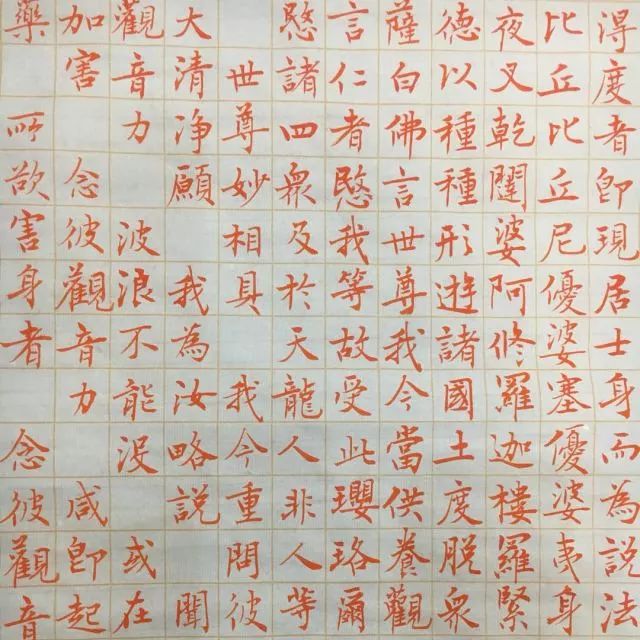 得度者即現居士身而為說法
比丘比丘尼優婆塞優婆夷身
夜叉乾闥婆阿修羅迦樓羅緊
德以種種形遊諸國土度脫衆
薩白佛言世尊我今當供養觀
言仁者愍我等故受此瓔珞爾
愍諸四衆及於天龍人非人等
世尊妙相具 我今重問彼
大清淨願 我為汝略說 聞
觀音力 波浪不能沒 或在
加害 念彼觀音力 咸即起
藥 所欲害身者 念彼觀音